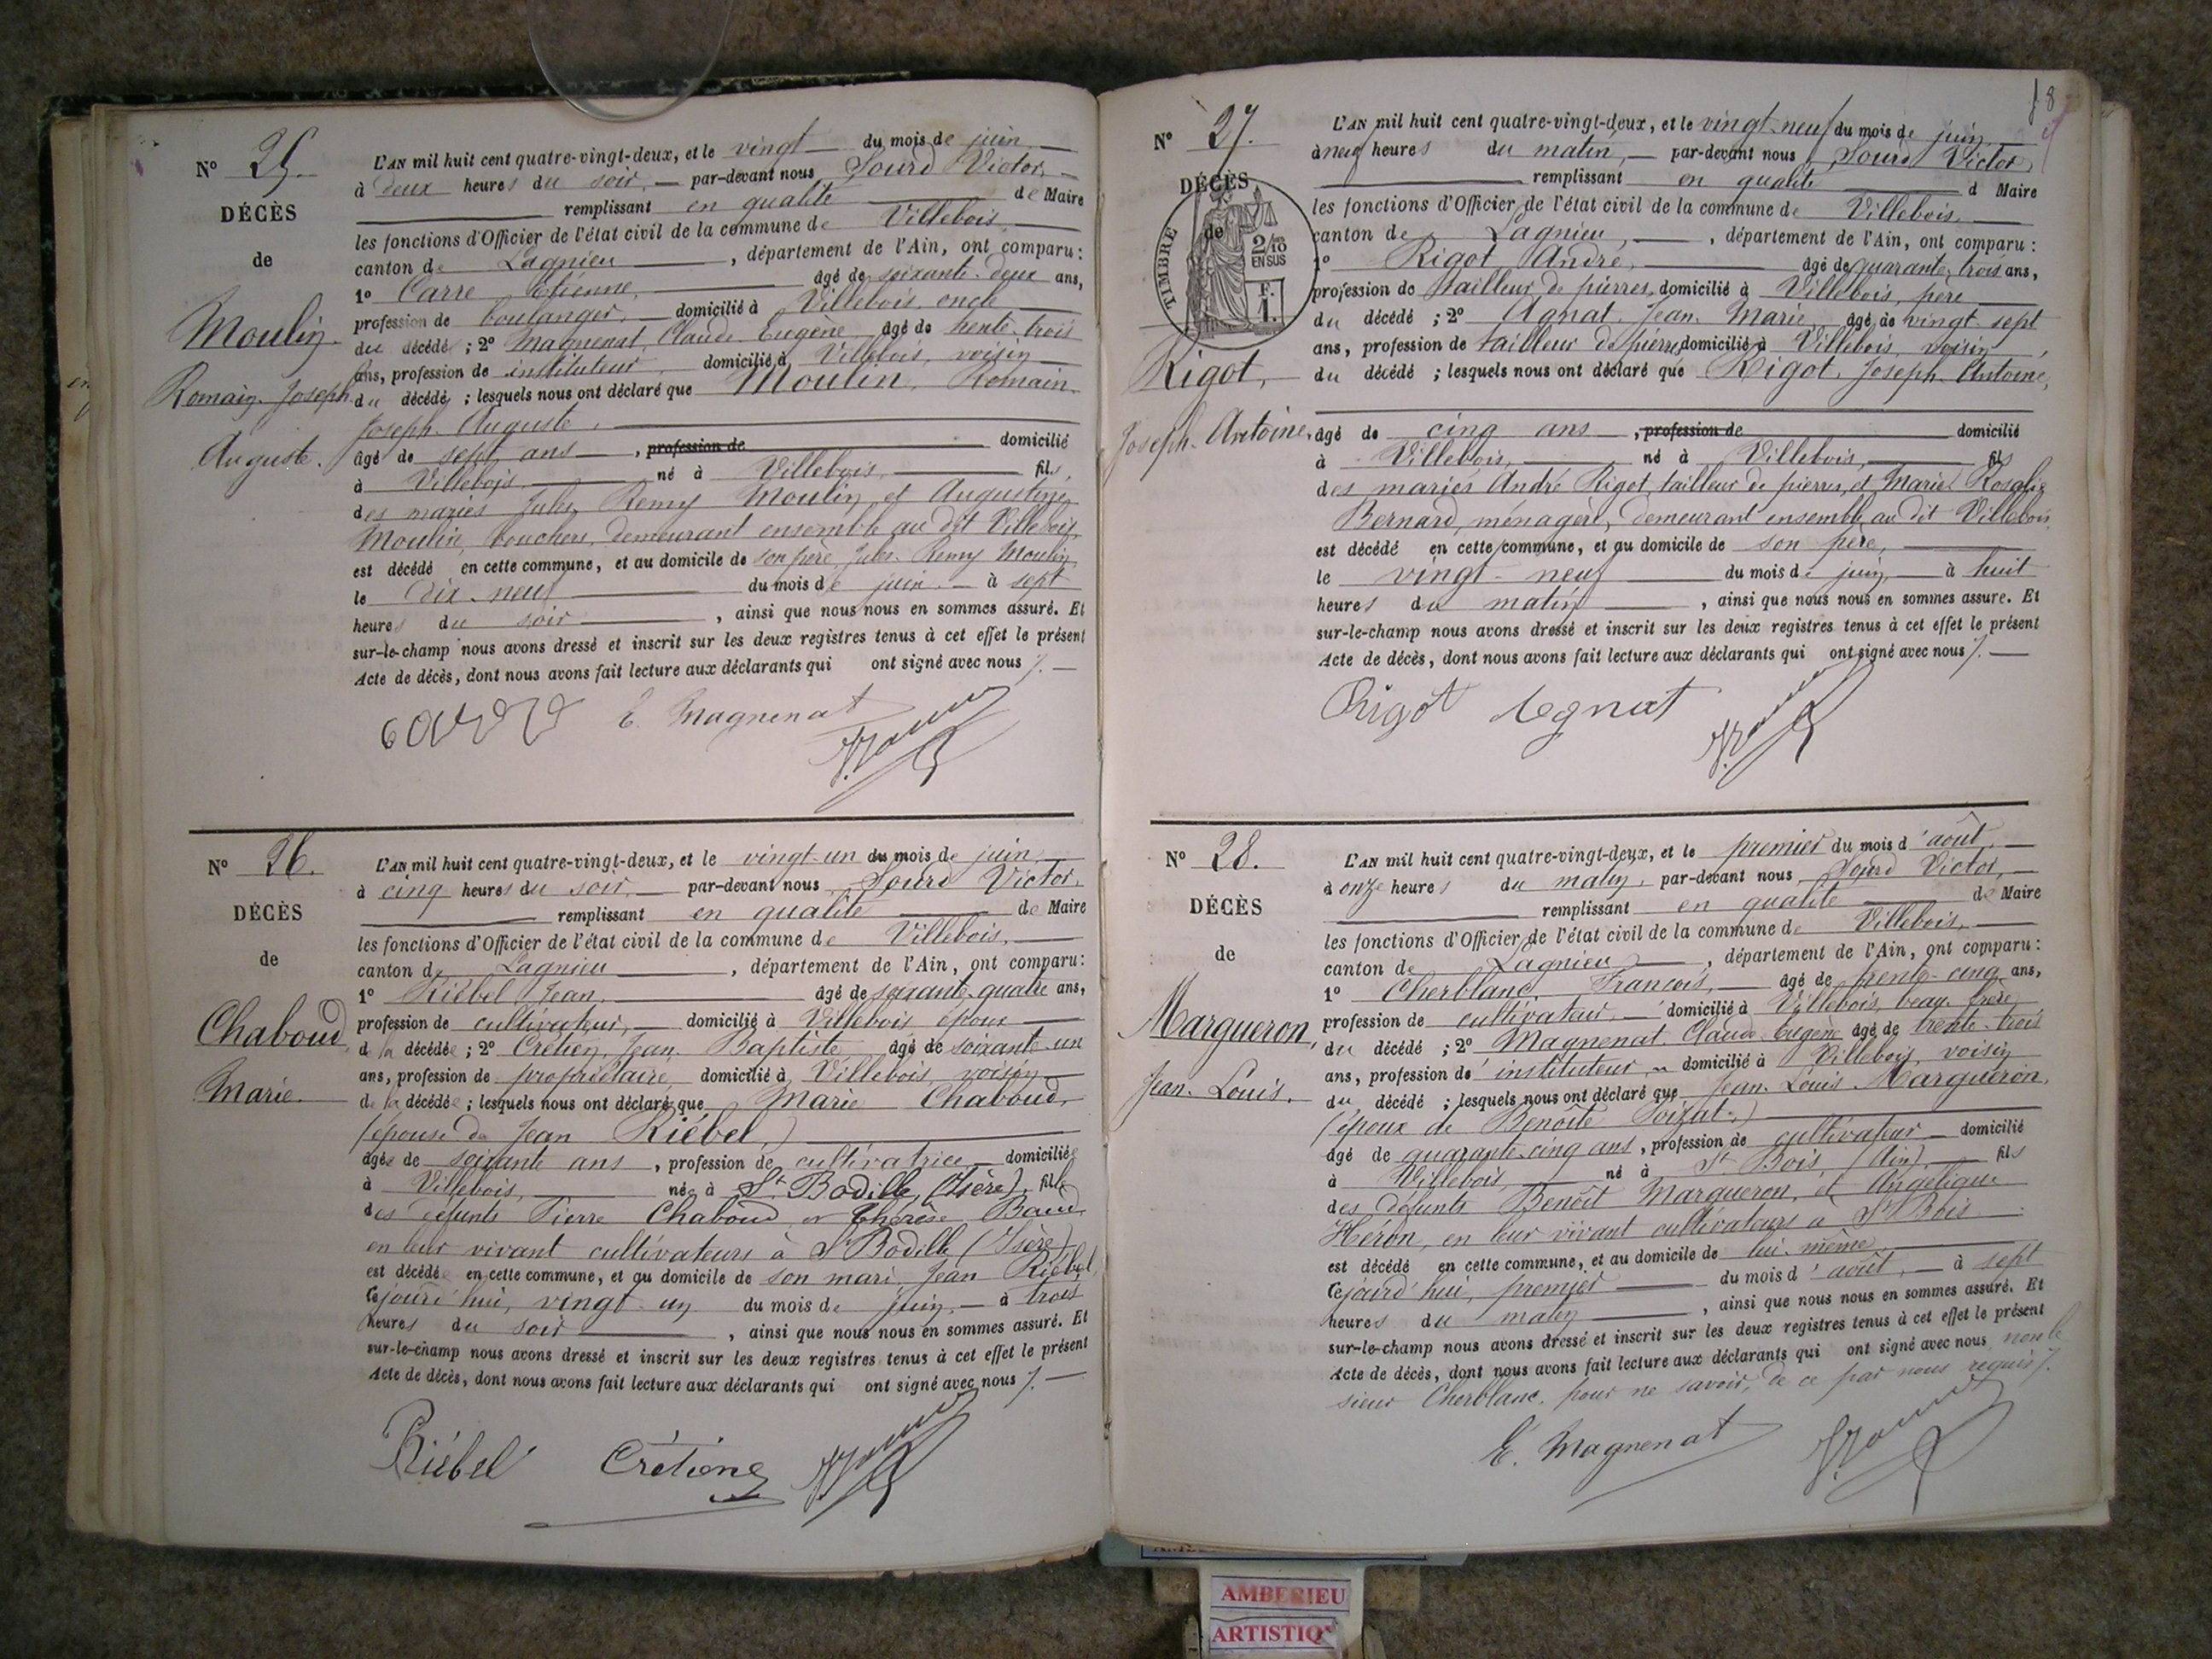 N° 25.
DÉCÈS
de
Moulin
Romain Joseph
Auguste.
L'AN mil huit cent quatre-vingt-deux, et le vingt du mois de juin
à deux heures du soir, par-devant nous Sourd Victor,
remplissant en qualité de Maire
les fonctions d'Officier de l'état civil de la commune de Villebois,
canton de Lagnieu, département de l'Ain, ont comparu:
1° Carre Etienne, âgé de soixante-deux ans,
profession de boulanger, domicilié à Villebois, oncle
du décédé; 2° Magnenat, Claude Eugène âgé de trente-trois
ans, profession de instituteur, domicilié à Villebois, voisin
du décédé; lesquels nous ont déclaré que Moulin, Romain
Joseph Auguste,
âgé de sept ans, profession de domicilié
à Villebois, né à Villebois, fils
des mariés Jules Remy Moulin, et Augustine
Moulin, bouchers, demeurant ensemble au dit Villebois,
est décédé en cette commune, et au domicile de son père, Jules Remy Moulin,
le dix-neuf du mois de juin à sept
heures du soir, ainsi que nous nous en sommes assuré. Et
sur-le-champ nous avons dressé et inscrit sur les deux registres tenus à cet effet le présent
Acte de décès, dont nous avons fait lecture aux déclarants qui ont signé avec nous
E. Magnenat
N° 26.
DÉCÈS
de
Chaboud
Marie.
L'AN mil huit cent quatre-vingt-deux, et le vingt-un du mois de juin
à cinq heures du soir, par-devant nous Sourd Victor,
remplissant en qualité de Maire
les fonctions d'Officier de l'état civil de la commune de Villebois,
canton de Lagnieu, département de l'Ain, ont comparu:
1° Riébel Jean, âgé de soixante-quatre ans,
profession de cultivateur, domicilié à Villebois époux
de la décédée; 2° Crétien, Jean Baptiste âgé de soixante-un
ans, profession de propriétaire, domicilié à Villebois, voisin
de la décédée; lesquels nous ont déclaré que Marie Chaboud,
(épouse de Jean Riébel,)
âgée de soixante ans, profession de cultivatrice domiciliée
à Villebois, née à St Bodille, (Isère), fille
des défunts Pierre Chaboud et Thérèse Baud,
en leur vivant cultivateurs à St Bodille (Isère)
est décédée en cette commune, et au domicile de son mari Jean Riébel,
cejourd'hui, vingt-un du mois de juin, à trois
heures du soir, ainsi que nous nous en sommes assuré. Et
sur-le-champ nous avons dressé et inscrit sur les deux registres tenus à cet effet le présent
Acte de décès, dont nous avons fait lecture aux déclarants qui ont signé avec nous
Riébel Crétiene
18
N° 27.
DÉCÈS
de
TIMBRE
2/10 EN SUS
F. 1.
Rigot,
Joseph-Antoine,
L'AN mil huit cent quatre-vingt-deux, et le vingt-neuf du mois de juin
à neuf heures du matin, par-devant nous, Sourd Victor,
remplissant en qualité d Maire
les fonctions d'Officier de l'état civil de la commune de Villebois,
canton de Lagnieu, département de l'Ain, ont comparu:
1° Rigot, André, âgé de quarante-trois ans,
profession de tailleur de pierres, domicilié à Villebois, père
du décédé; 2° Agnat Jean Marie âgé de vingt-sept
ans, profession de tailleur de pierres domicilié à Villebois, voisin
du décédé; lesquels nous ont déclaré que Rigot, Joseph-Antoine,
âgé de cinq ans, profession de domicilié
à Villebois, né à Villebois, fils
des mariés André Rigot, tailleur de pierres, et Marie Rosalie
Bernard, ménagère, demeurant ensemble au dit Villebois
est décédé en cette commune, et au domicile de son père,
le vingt-neuf du mois de juin à huit
heures du matin, ainsi que nous nous en sommes assuré. Et
sur-le-champ nous avons dressé et inscrit sur les deux registres tenus à cet effet le présent
Acte de décès, dont nous avons fait lecture aux déclarants qui ont signé avec nous
Rigot Agnat
N° 28.
DÉCÈS
de
Margueron,
Jean-Louis.
L'AN mil huit cent quatre-vingt-deux, et le premier du mois d'août,
à onze heures du matin, par-devant nous Sourd Victor,
remplissant en qualité de Maire
les fonctions d'Officier de l'état civil de la commune de Villebois,
canton de Lagnieu, département de l'Ain, ont comparu:
1° Cherblanc, François, âgé de trente-cinq ans,
profession de cultivateur domicilié à Villebois, beau-frère
du décédé; 2° Magnenat Claude Eugène âgé de trente-trois
ans, profession de instituteur domicilié à Villebois, voisin
du décédé; lesquels nous ont déclaré que Jean-Louis Margueron,
(époux de Benoîte Soizat,)
âgé de quarante-cinq ans, profession de cultivateur domicilié
à Villebois, né à St Bois, (Ain), fils
des défunts Benoît Margueron, et Angélique
Héron, en leur vivant cultivateurs à St Bois
est décédé en cette commune, et au domicile de lui-même
cejourd'hui, premier du mois d'août, à sept
heures du matin, ainsi que nous nous en sommes assuré. Et
sur-le-champ nous avons dressé et inscrit sur les deux registres tenus à cet effet le présent
Acte de décès, dont nous avons fait lecture aux déclarants qui ont signé avec nous non le
sieur Cherblanc, pour ne savoir, de ce par nous requis
E. Magnenat
AMBERIEU
ARTISTIQ